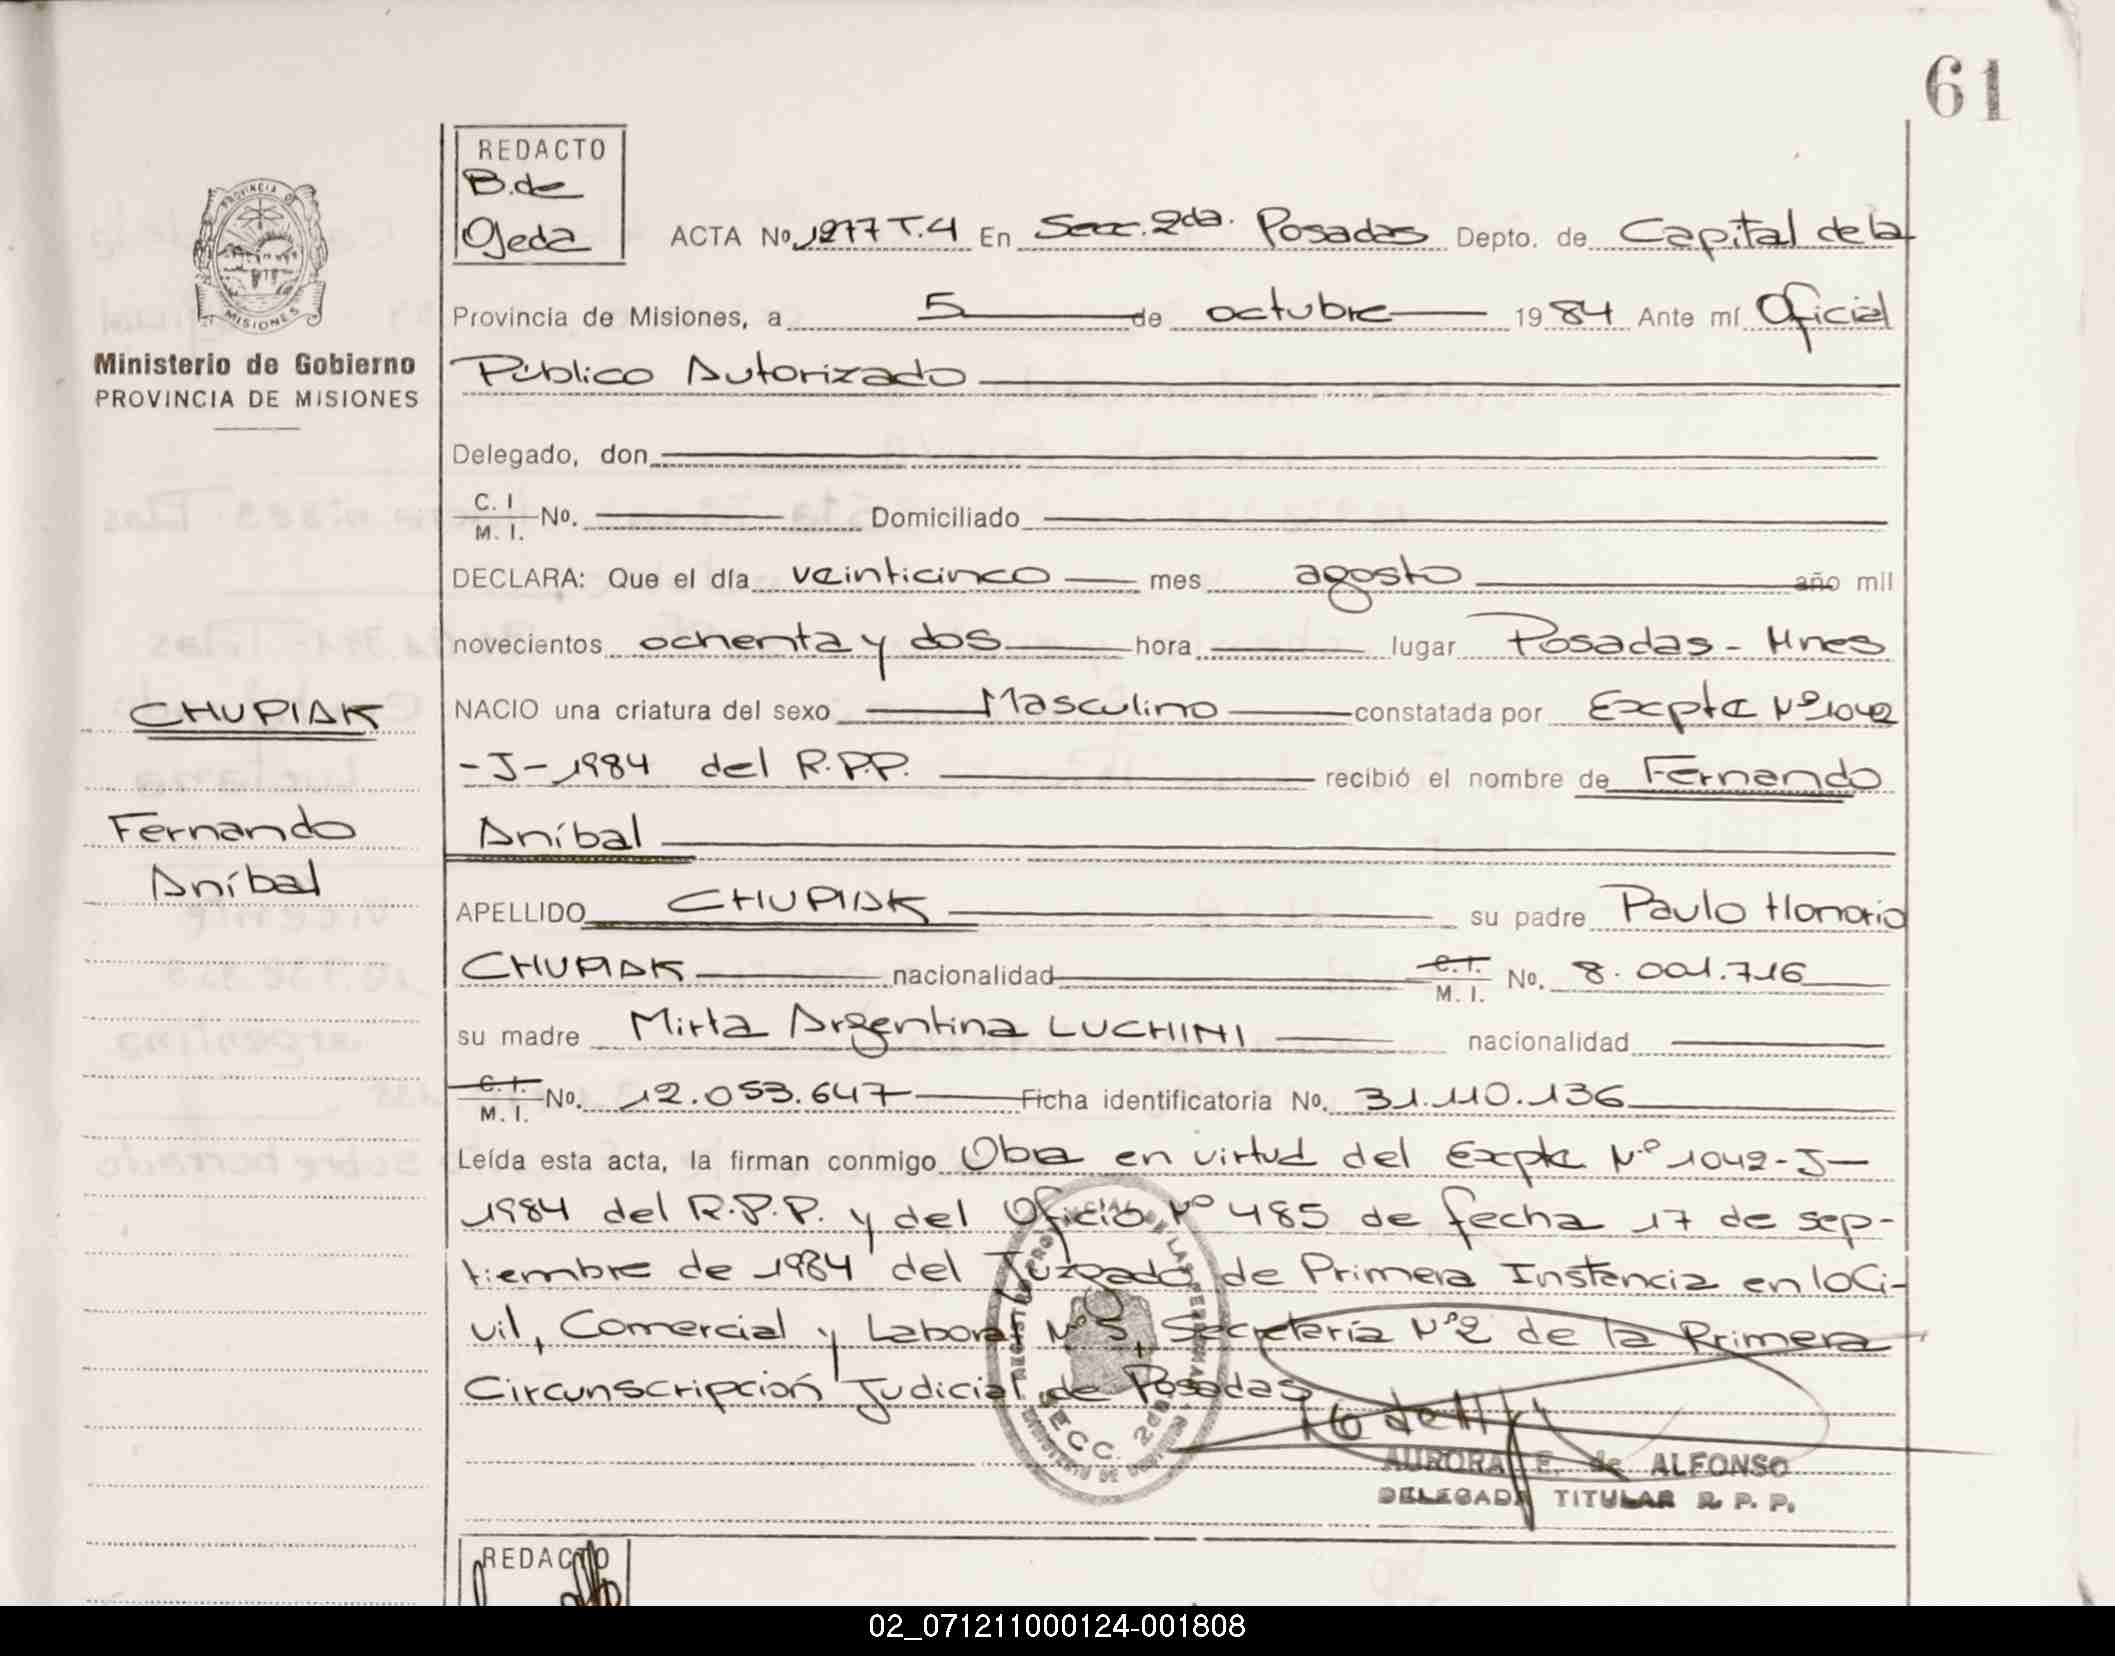 61
REDACTO
B. de
Ojeda
ACTA Nº 1277 T.4 En Secc. 2da. Posadas Depto. de Capital de la
PROVINCIA DE
MISIONES
Ministerio de Gobierno
PROVINCIA DE MISIONES
Provincia de Misiones, a 5 de octubre 1984 Ante mí Oficial
Público Autorizado
Delegado, don
C. I.
M. I. No. Domiciliado
DECLARA: Que el día veinticinco mes agosto año mil
novecientos ochenta y dos hora lugar Posadas - Mnes
CHUPIAK
Fernando
Aníbal
NACIO una criatura del sexo Masculino constatada por Expte Nº 1042
-J-1984 del R.P.P. recibió el nombre de Fernando
Aníbal
APELLIDO CHUPIAK su padre Paulo Honorio
CHUPIAK nacionalidad C. I. M. I. No. 8.001.716
su madre Mirta Argentina LUCHINI nacionalidad
C. I. M. I. No. 12.053.647 Ficha identificatoria No. 31.110.136
Leída esta acta, la firman conmigo Obra en virtud del Expte Nº 1042-J-
1984 del R.P.P. y del Oficio Nº 485 de fecha 17 de sep-
tiembre de 1984 del Juzgado de Primera Instancia en lo Ci-
vil, Comercial y Laboral Nº 5, Secretaría Nº 2 de la Primera
Circunscripción Judicial de Posadas
SECC. 2da
AURORA E. de ALFONSO
DELEGADA TITULAR R. P. P.
REDACTO
02_071211000124-001808